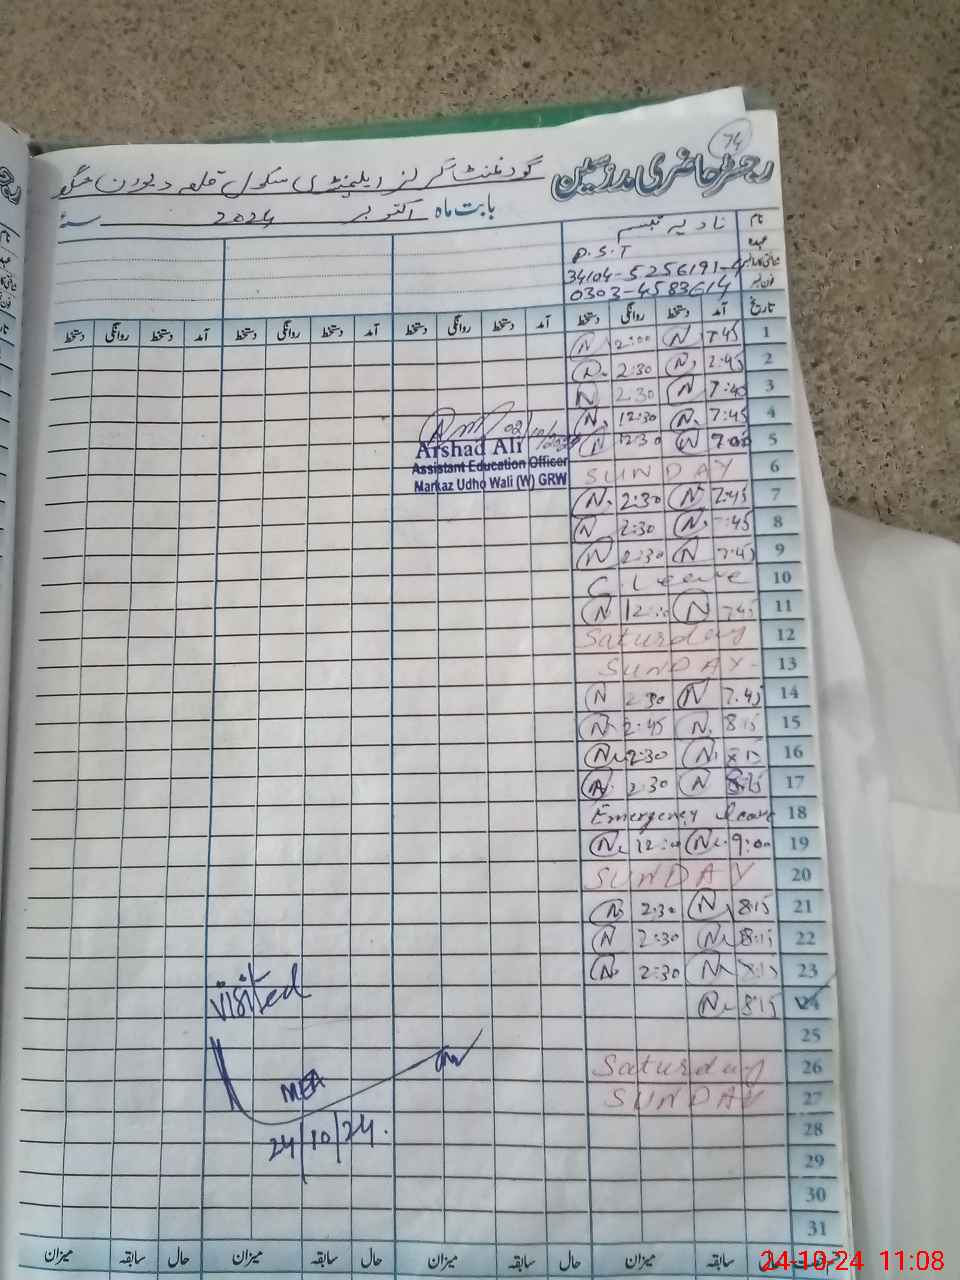 74
رجسٹر حاضری مدرسین گورنمنٹ گرلز ایلیمنٹری سکول قلعہ دیوان سنگھ
بابت ماہ اکتوبر 2024 سنہ
نام نادیہ تبسم
عہدہ P.S.T
34104-5256191-4
فون نمبر 0303-4583614
تاریخ آمد دستخط روانگی دستخط آمد دستخط روانگی دستخط آمد دستخط روانگی دستخط
1 7:45 N 2:00 N
2 7:45 N 2:30 N
3 7:40 N 2:30 N
4 7:45 N 12:30 N
5 9:00 N 12:30 N
Arshad Ali
Assistant Education Officer
Markaz Udho Wali (W) GRW
6 SUNDAY
7 7:45 N 2:30 N
8 7:45 N 2:30 N
9 7:45 N 2:30 N
10 C. Leave
11 7:45 N N
12 Saturday
13 SUNDAY
14 7:45 N 2:30 N
15 8:15 N 2:45 N
16 8:15 N 2:30 N
17 8:15 N 2:30 N
18 Emergency leave
19 9:00 N 12:00 N
20 SUNDAY
21 8:15 N 2:30 N
22 8:15 N 2:30 N
23 8:15 N 2:30 N
24 8:15 N
25
26 Saturday
27 SUNDAY
28
29
30
31
visited
MEA
24/10/24.
حال سابقہ میزان حال سابقہ میزان حال سابقہ میزان حال سابقہ میزان
24-10-24 11:08